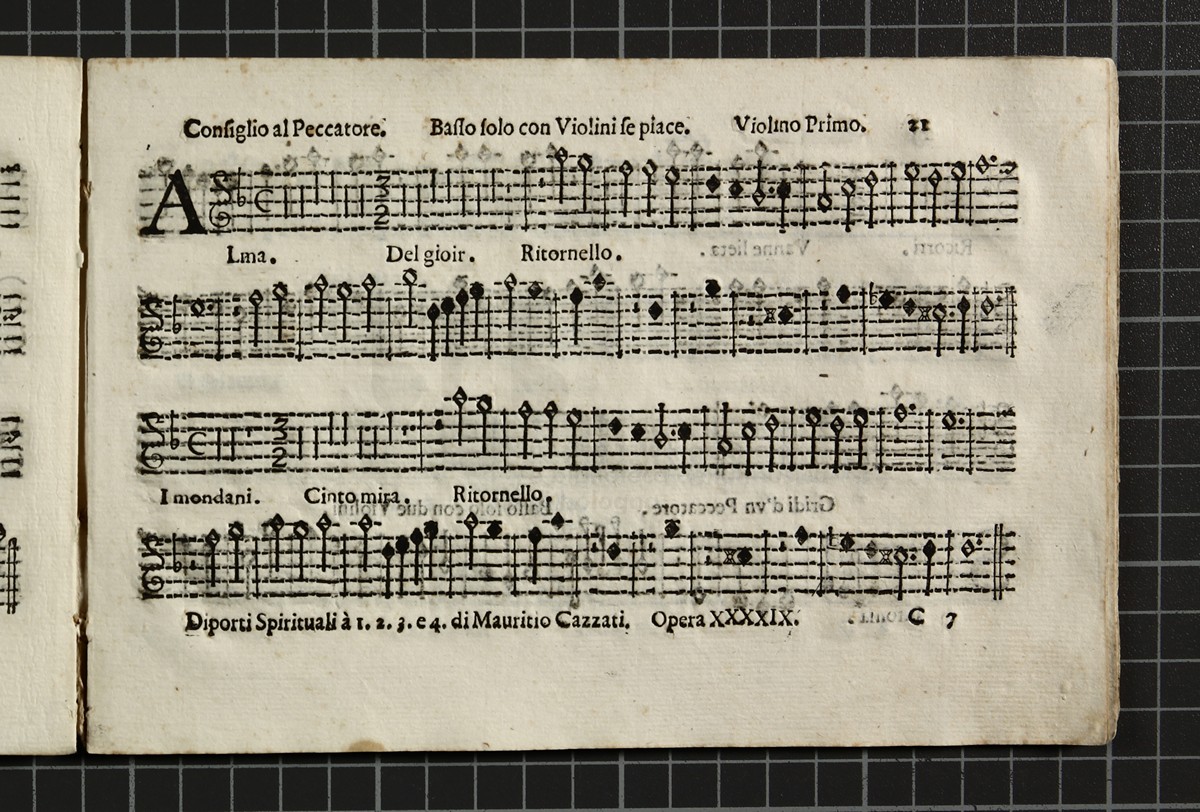 Consiglio al Peccatore. Basso solo con Violini se piace. Violino Primo. 21
A
Lma. Del gioir. Ritornello.
I mondani. Cinto mira. Ritornello.
Diporti Spirituali à 1. 2. 3. e 4. di Mauritio Cazzati. Opera XXXXIX. C 7